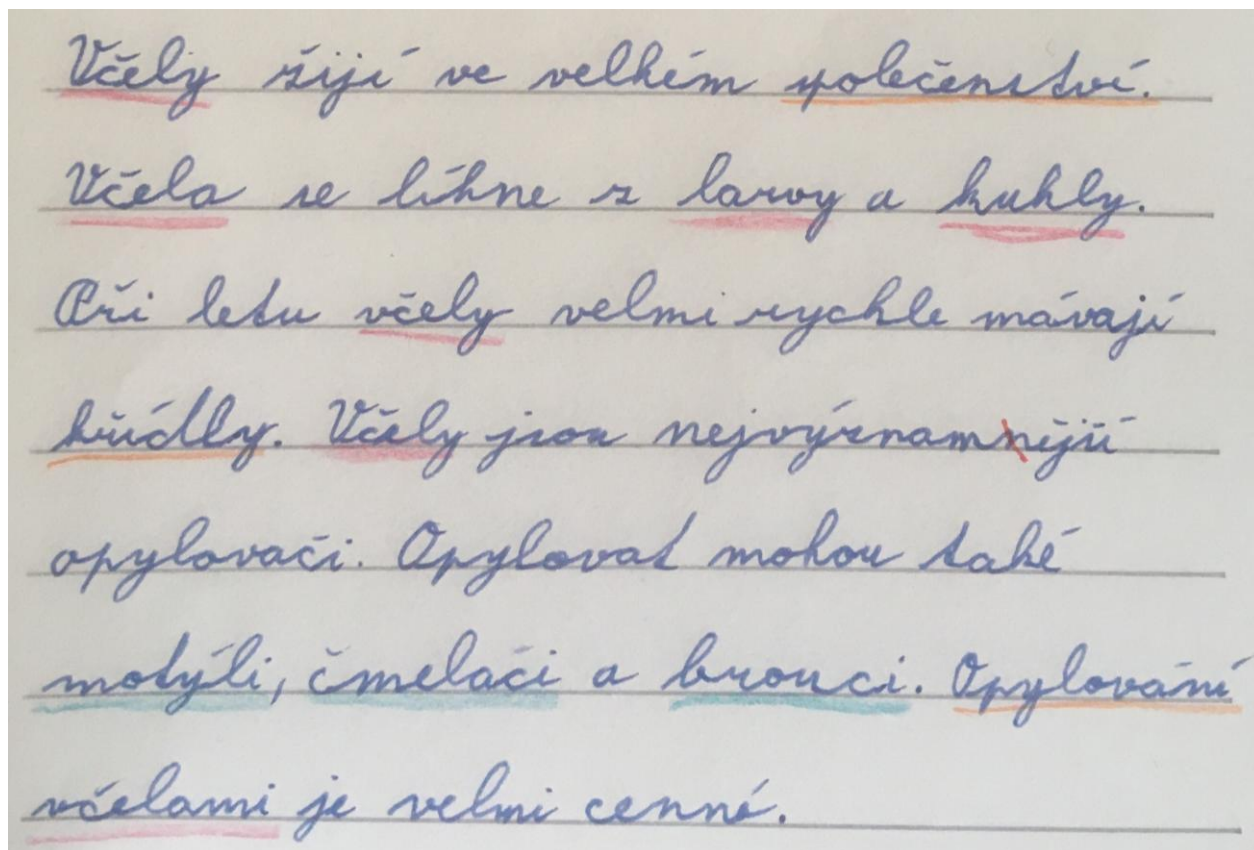 Včely žijí ve velkém společenství.
Včela se líhne z larvy a kukly.
Při letu včely velmi rychle mávají
křídly. Včely jsou nejvýznamnější
opylovači. Opylovat mohou také
motýli, čmeláci a brouci. Opylování
včelami je velmi cenné.